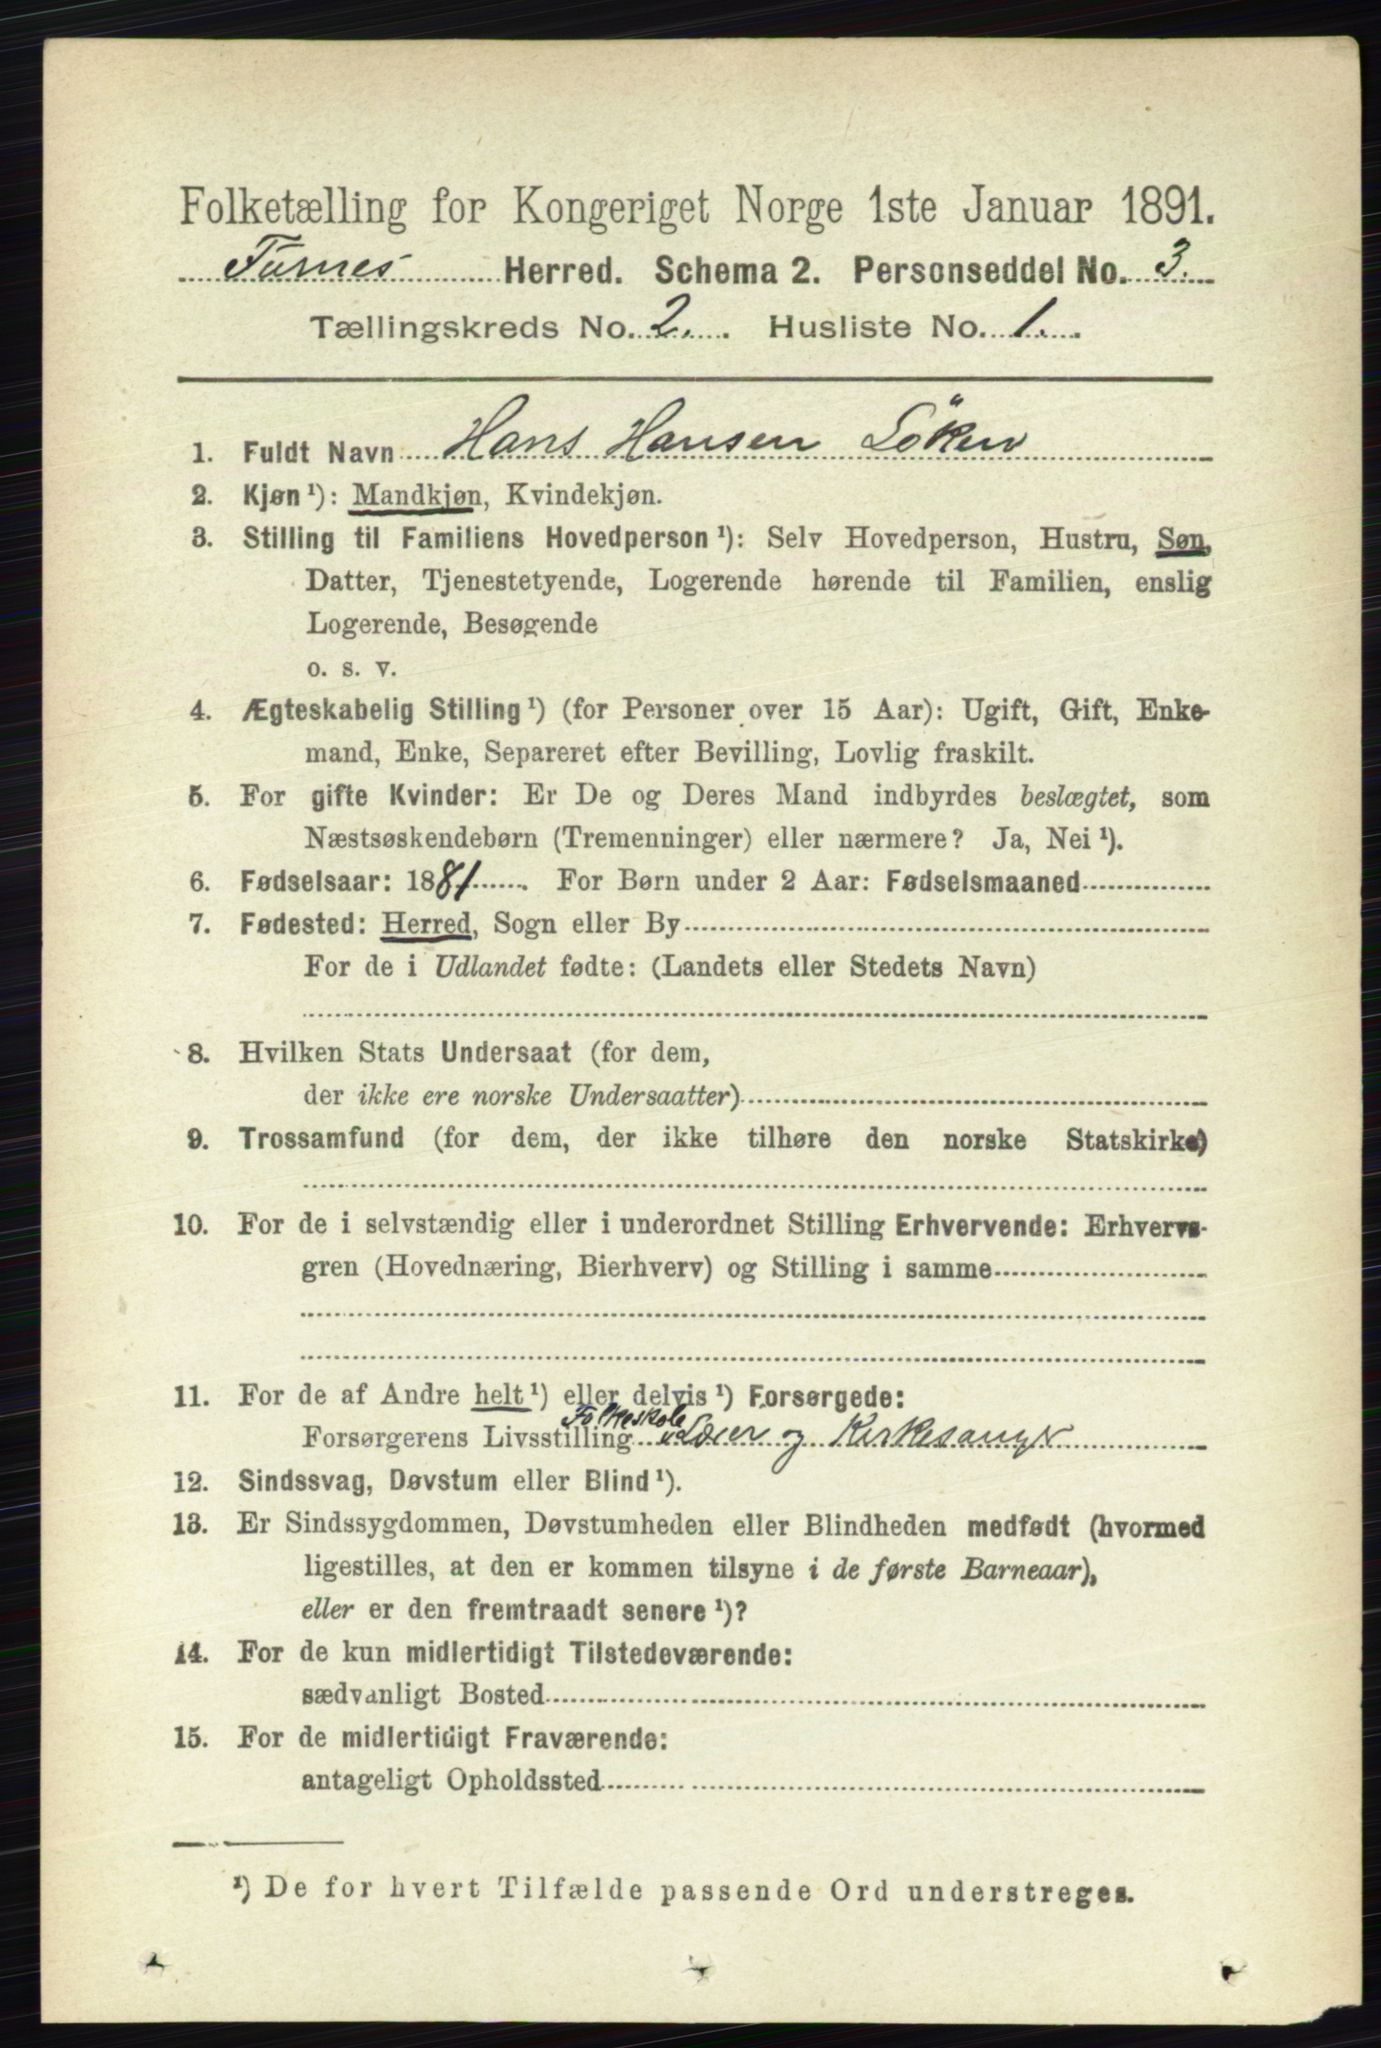 Folketælling for Kongeriget Norge 1ste Januar 1891.
Furnes Herred. Schema 2. Personseddel No. 3.
Tællingskreds No. 2. Husliste No. 1.
1. Fuldt Navn Hans Hansen Löken
2. Kjøn ¹): Mandkjøn, Kvindekjøn.
3. Stilling til Familiens Hovedperson ¹): Selv Hovedperson, Hustru, Søn,
Datter, Tjenestetyende, Logerende hørende til Familien, enslig
Logerende, Besøgende
o. s. v.
4. Ægteskabelig Stilling ¹) (for Personer over 15 Aar): Ugift, Gift, Enke-
mand, Enke, Separeret efter Bevilling, Lovlig fraskilt.
5. For gifte Kvinder: Er De og Deres Mand indbyrdes beslægtet, som
Næstsøskendebørn (Tremenninger) eller nærmere? Ja, Nei ¹).
6. Fødselsaar: 1881. For Børn under 2 Aar: Fødselsmaaned
7. Fødested: Herred, Sogn eller By
For de i Udlandet fødte: (Landets eller Stedets Navn)
8. Hvilken Stats Undersaat (for dem,
der ikke ere norske Undersaatter)
9. Trossamfund (for dem, der ikke tilhøre den norske Statskirke)
10. For de i selvstændig eller i underordnet Stilling Erhvervende: Erhvervs-
gren (Hovednæring, Bierhverv) og Stilling i samme
11. For de af Andre helt ¹) eller delvis ¹) Forsørgede:
Folkeskole
Forsørgerens Livsstilling Lærer og Kirkesanger
12. Sindssvag, Døvstum eller Blind ¹).
13. Er Sindssygdommen, Døvstumheden eller Blindheden medfødt (hvormed
ligestilles, at den er kommen tilsyne i de første Barneaar),
eller er den fremtraadt senere ¹)?
14. For de kun midlertidigt Tilstedeværende:
sædvanligt Bosted
15. For de midlertidigt Fraværende:
antageligt Opholdssted
¹) De for hvert Tilfælde passende Ord understreges.